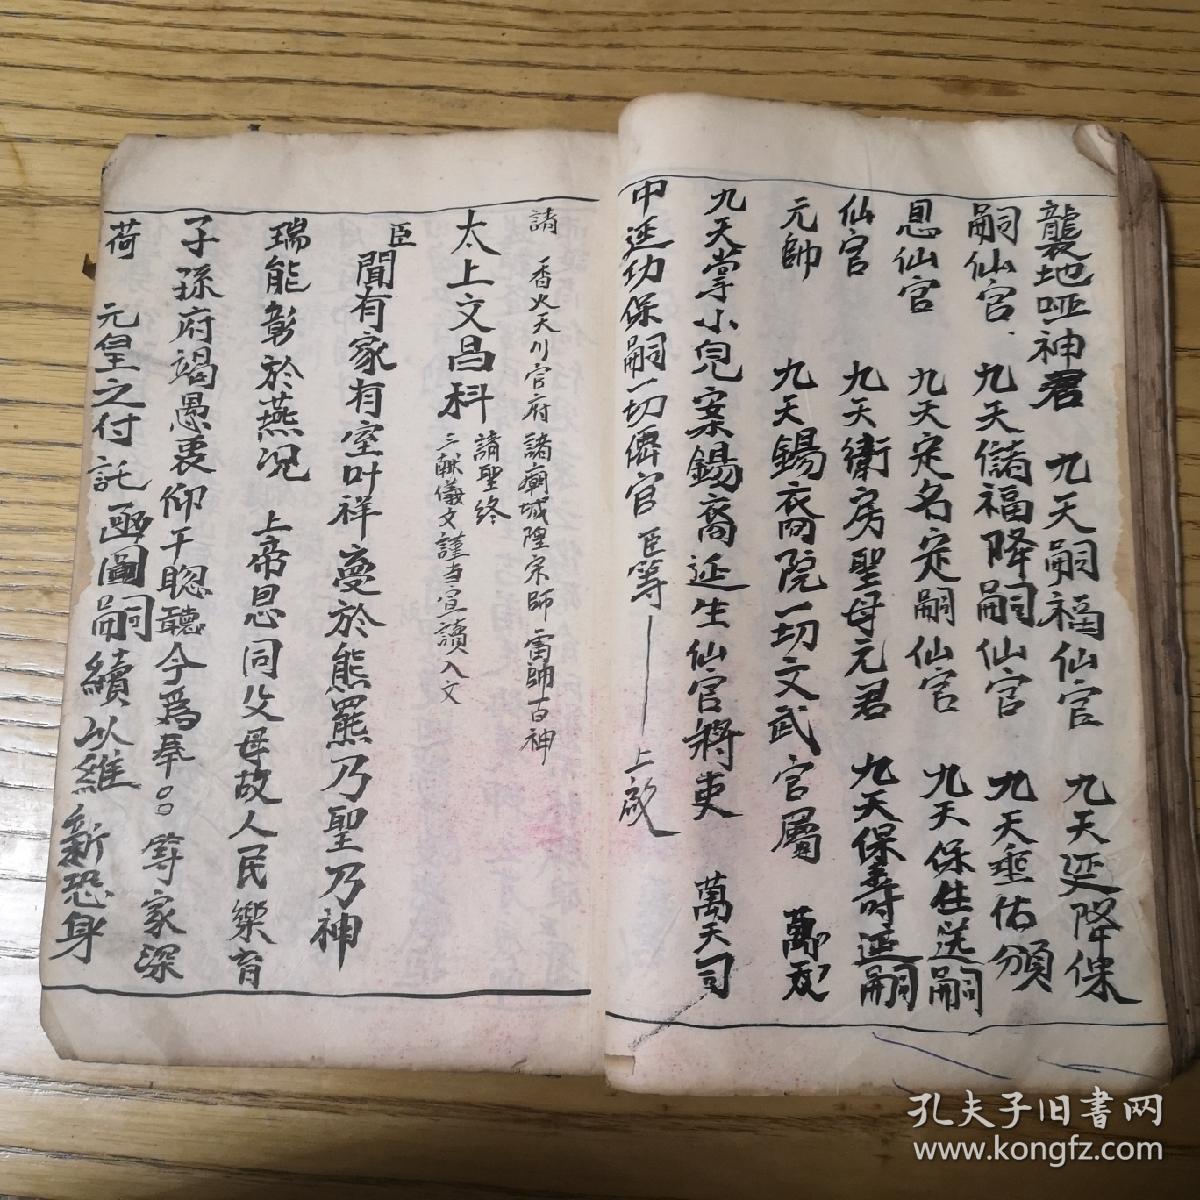 聾地啞神君　九天嗣福仙官　九天延降保
嗣仙官、九天儲福降嗣仙官　九天垂佑頒
恩仙官　九天定名定嗣仙官　九天保生送嗣
仙官　九天衛房聖母元君　九天保壽延嗣
元帥　九天錫裔院一切文武官屬　萬
九天掌小兒案錫裔延生仙官將吏　萬天司
中延功保嗣一切儕官　臣等　上啟
請　香火天川官府　諸廟城隍宗師雷帥百神
太上文昌科　請聖終
三献儀文謹当宣讀入文
臣聞有家有室叶祥夢於熊羆乃聖乃神
瑞能彰於燕况　上帝恩同父母故人民樂育
子孫府竭愚衷仰干聰聽今為奉。。等家深
荷　元皇之付託函圖嗣續以維新恐身
孔夫子旧書网
www.kongfz.com